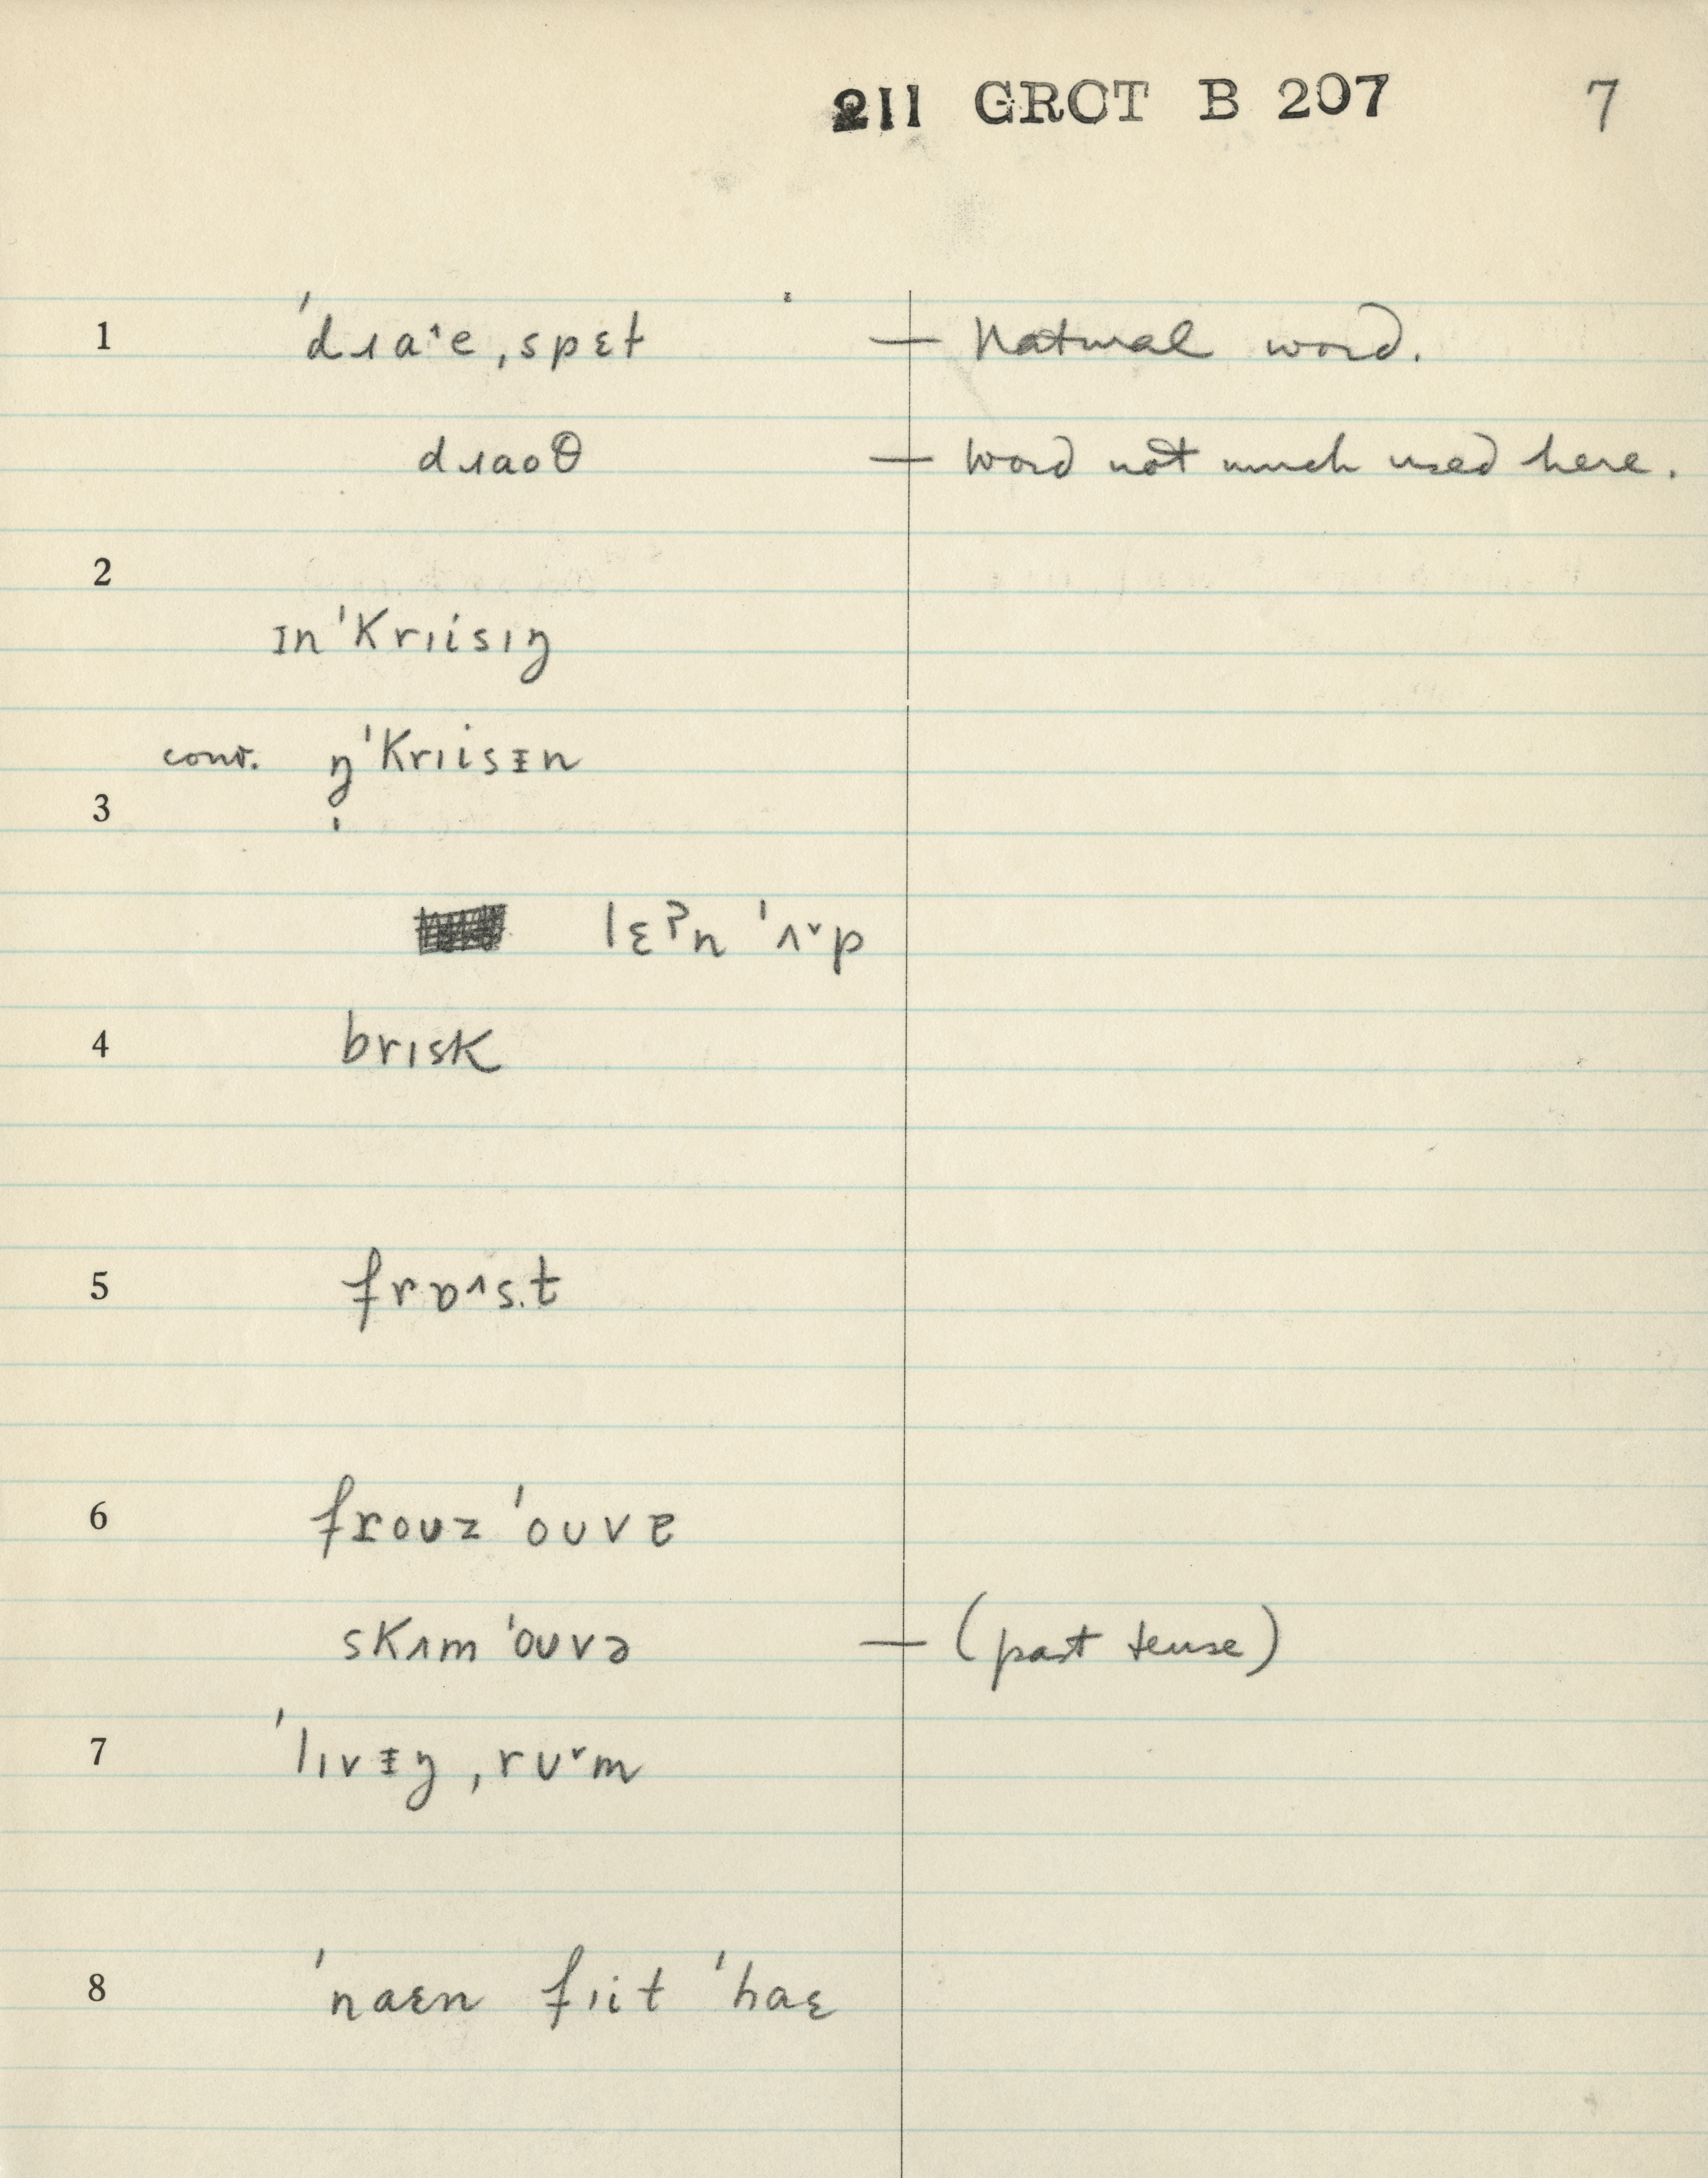 211 GROT B 207 7
1 ˈdɹa˄e ˌspɛt — Natural word.
dɹaoθ — word not much used here.
2
ɪnˈkrɪisɪŋ
conv. ŋ̍ˈkrɪisᵻn
3
lɛˀn ˈʌ˅p
4 brɪsk
5 frɒ˄s.t
6 froʊz ˈoʊvɐ
skɪm ˈoʊvə — (past tense)
7 ˈlɪvᵻŋ ˌrʊ˅m
8 ˈnaɛn fɪit ˈhaɛ